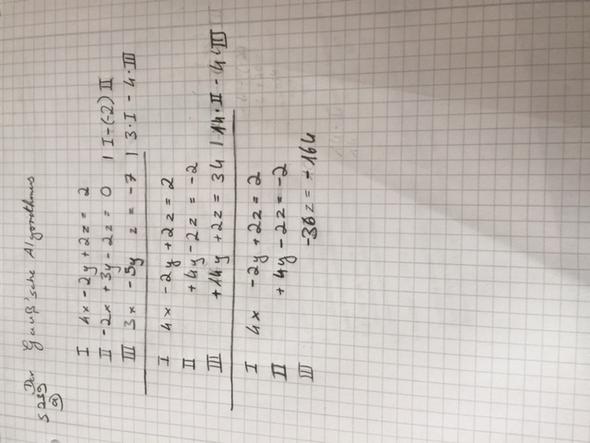 S 239 Der Gauß'sche Algorithmus
a)
I 4x - 2y + 2z = 2
II -2x + 3y - 2z = 0 | I - (-2) II
III 3x - 5y z = -7 | 3·I - 4·III
I 4x - 2y + 2z = 2
II +4y - 2z = -2
III +14y + 2z = 34 | 14·II - 4·III
I 4x - 2y + 2z = 2
II +4y - 2z = -2
III -36z = -164